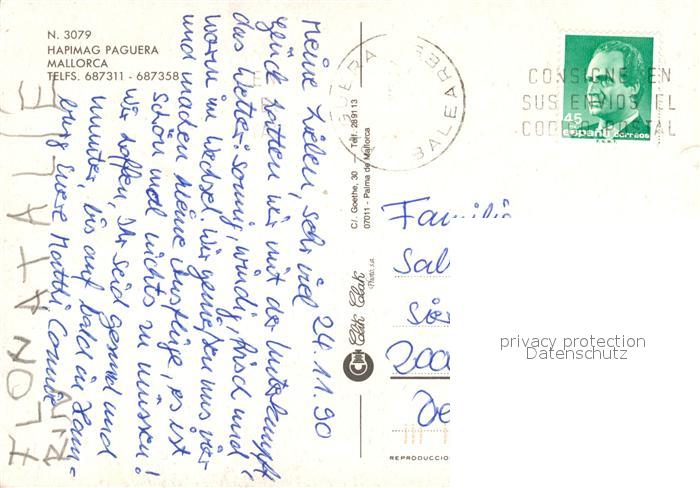 N. 3079
HAPIMAG PAGUERA
MALLORCA
TELFS. 687311 - 687358
24.11.90
Meine Lieben, sehr viel
Glück hatten wir mit der Unterkunft
das Wetter: sonnig, windig, frisch und
warm im Wechsel. Wir genießen nur
und machen kleine Ausflüge, es ist
schön mal nichts zu müssen!
Wir hoffen, Ihr seid gesund und
munter, bis auf bald in Ham-
burg Eure Matthi
FLONATALIE
C/. Goethe, 30 — Telf. 289113
07011 - Palma de Mallorca
Clik Clak
Photo, s.a.
REPRODUCCIO
BALEARES
CONSIGNE EN
SUS ENVIOS EL
CODIGO POSTAL
45
españa correos
F.N.M.T.
Famili
Sal
2000
De
privacy protection
Datenschutz